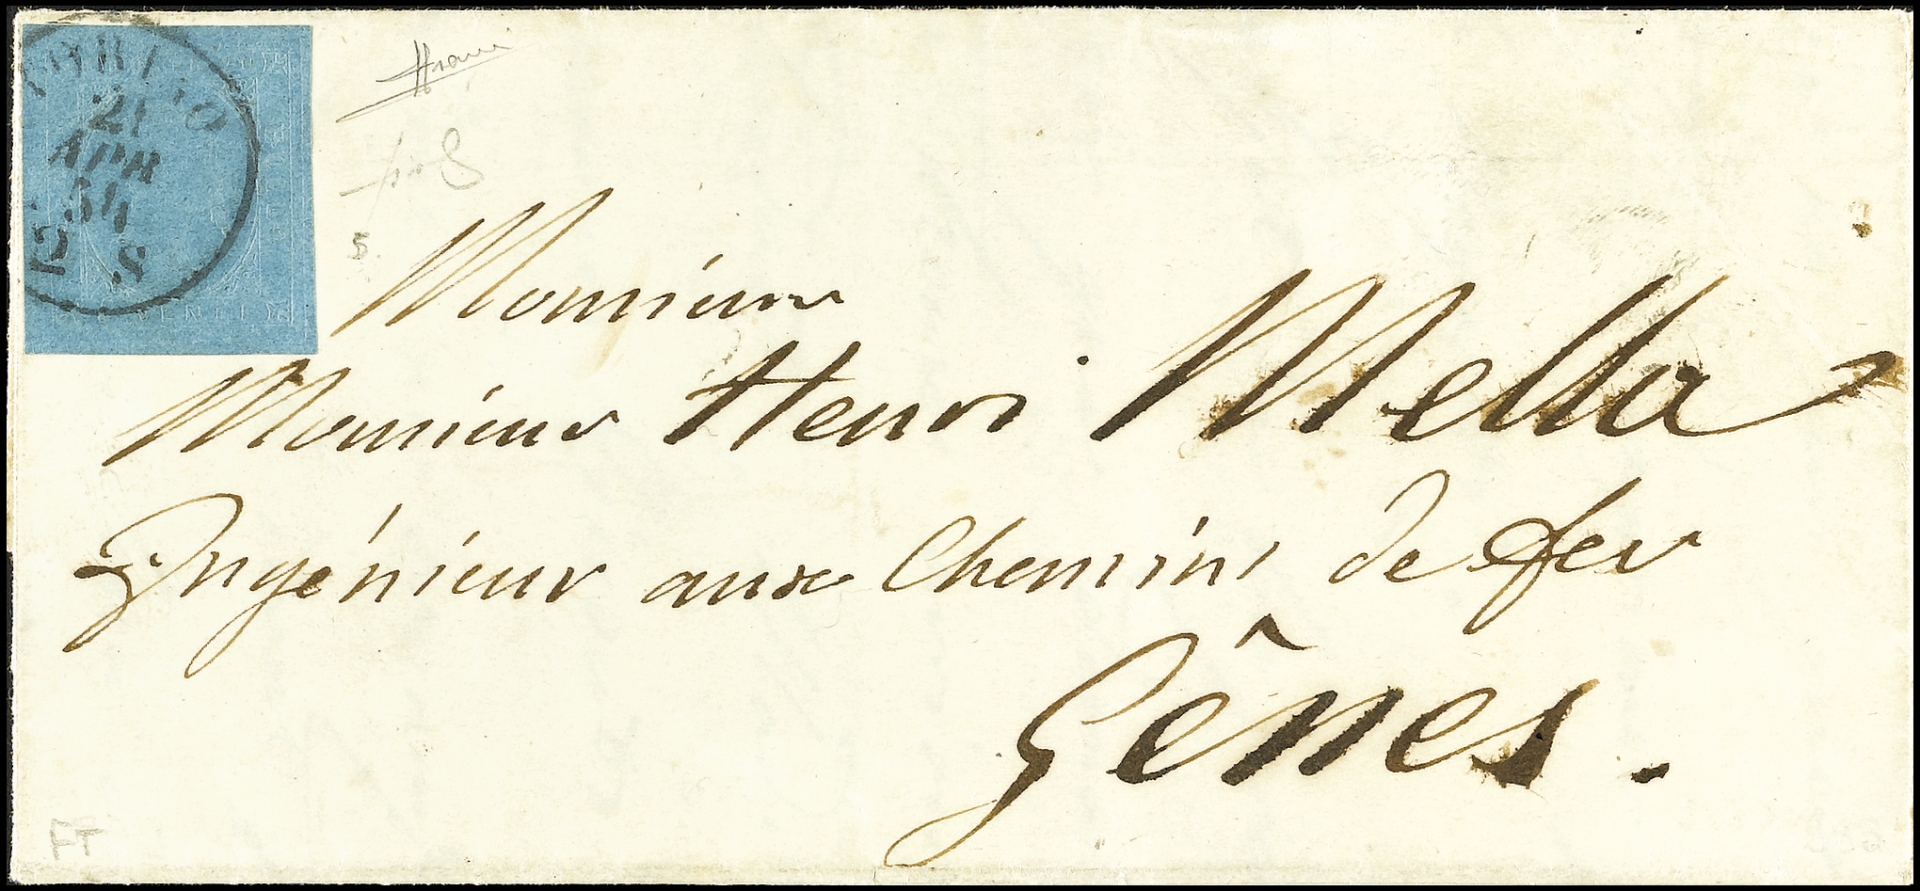 TORINO
21
APR
54
2 S
VENTI
5.
Monsieur
Monsieur Henri Mella
Ingénieur aux Chemins de fer
Gênes.